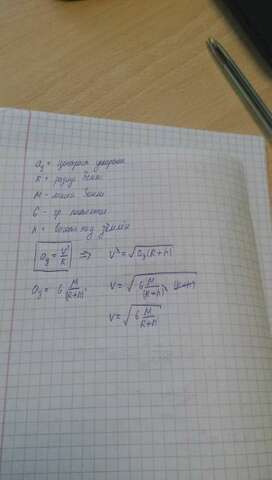 aу = центростр ускорение
R = радиус Земли
M - масса Земли
G - гр. постоянная
h = высота над землёй
aу = V²/R ⇒ V² = √aу(R+h)
aу = G M/(R+h)² V = √G M/(R+h)² (R+h)
V = √G M/R+h